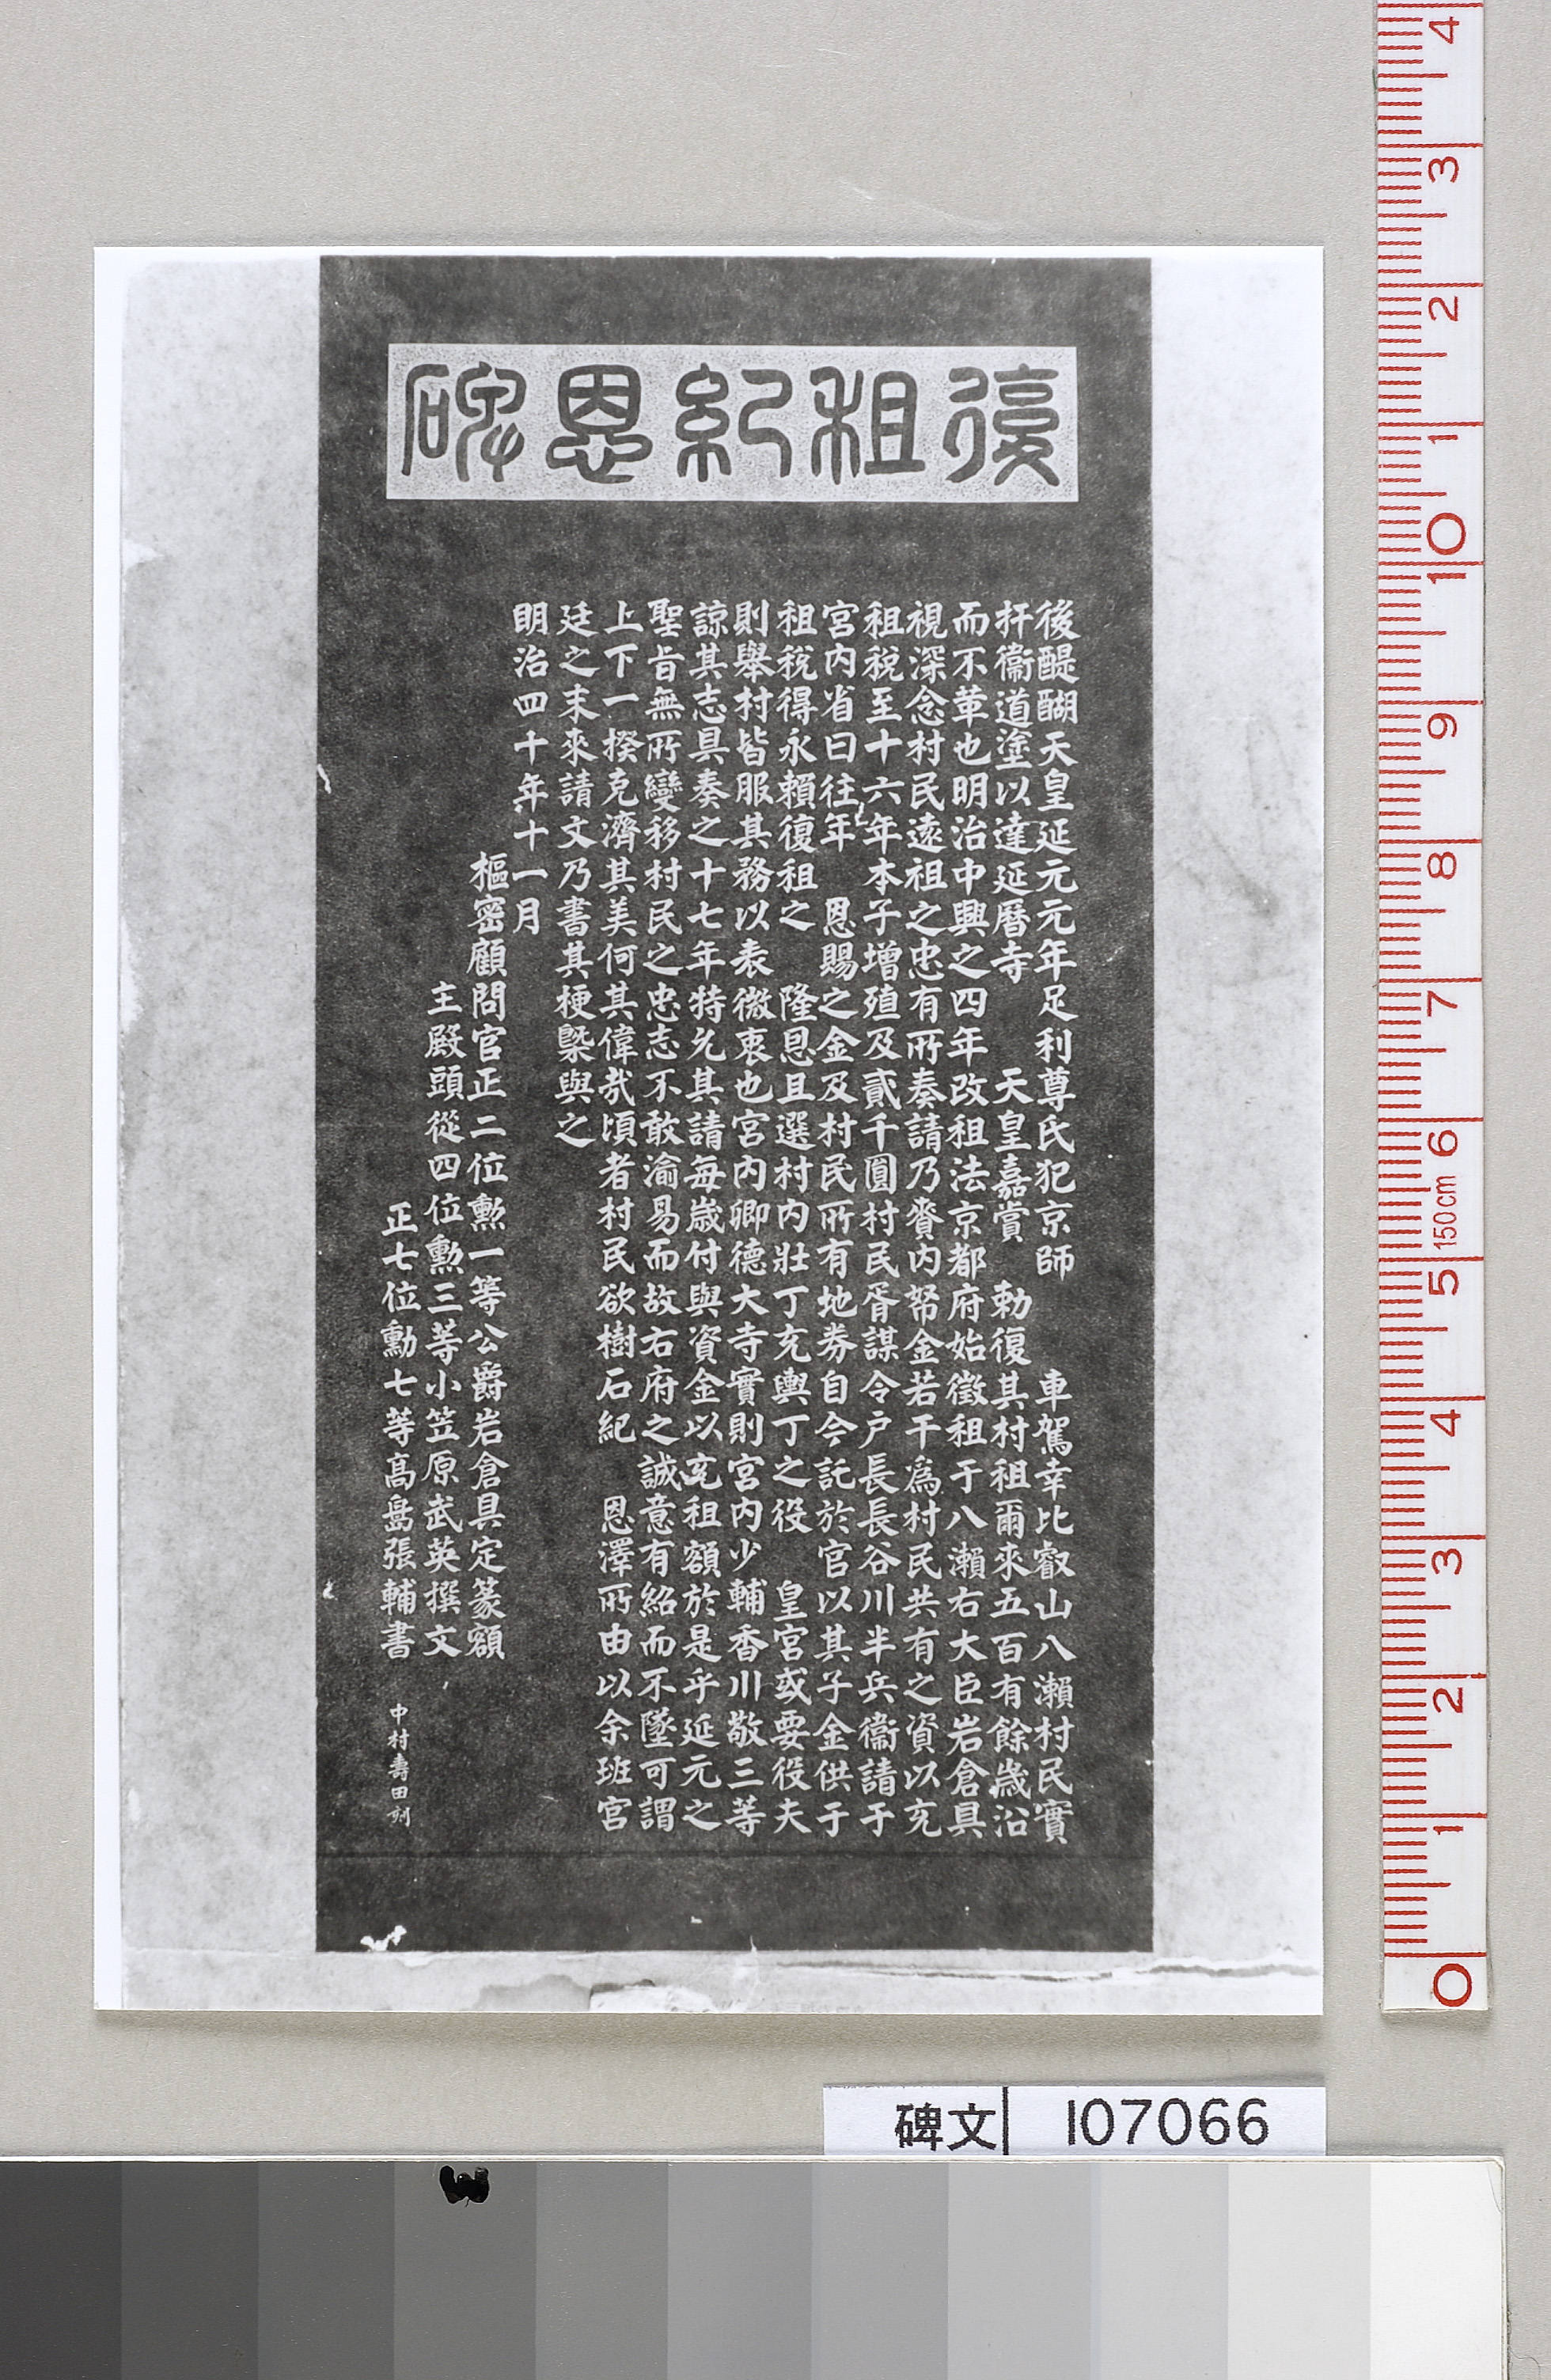 復租紀恩碑
後醍醐天皇延元元年足利尊氏犯京師　車駕幸比叡山八瀨村民實
扞衞道塗以達延曆寺　天皇嘉賞　勅復其村租爾來五百有餘歲沿
而不革也明治中興之四年改租法京都府始徵租于八瀨右大臣岩倉具
視深念村民遠祖之忠有所奏請乃賚內帑金若干爲村民共有之資以充
租稅至十六年本子增殖及貳千圓村民胥謀令戶長長谷川半兵衞請于
宮內省曰往年　恩賜之金及村民所有地券自今託於官以其子金供于
租稅得永賴復租之　隆恩且選村內壯丁充輿丁之役　皇宮或要役夫
則舉村皆服其務以表微衷也宮內卿德大寺實則宮內少輔香川敬三等
諒其志具奏之十七年特允其請每歲付與資金以充租額於是乎延元之
聖旨無所變移村民之忠志不敢渝易而故右府之誠意有紹而不墜可謂
上下一揆克濟其美何其偉哉頃者村民欲樹石紀　恩澤所由以余班宮
廷之末來請文乃書其梗槩與之
明治四十年十一月
樞密顧問官正二位勲一等公爵岩倉具定篆額
主殿頭從四位勲三等小笠原武英撰文
正七位勲七等高島張輔書
中村壽田刻
4
3
2
1
10
10
9
8
7
6
150cm
5
4
3
2
1
0
碑文 107066